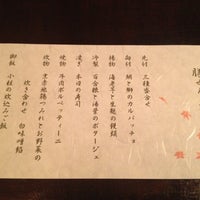 先付 三種盛合せ
向付 鯛と鰤のカルパッチョ
椀物 海老芋と生麩の饅頭
冷製 百合根と湯葉のポタージュ
凌ぎ 本日の寿司
焼物 牛肉ポルペッティーニ
里赤地鶏つみれとお野菜の
炊き合わせ 白味噌餡
御飯 小柱の炊込みご飯